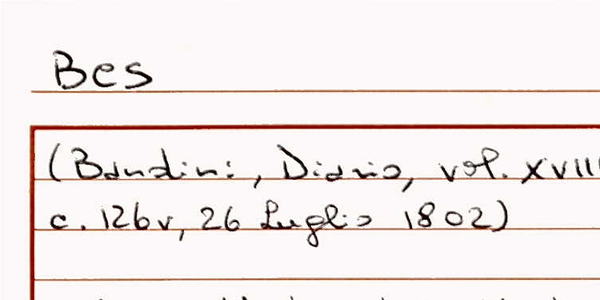 Bes
(Bandini, Diario, vol. XVIII
c. 126v, 26 Luglio 1802)